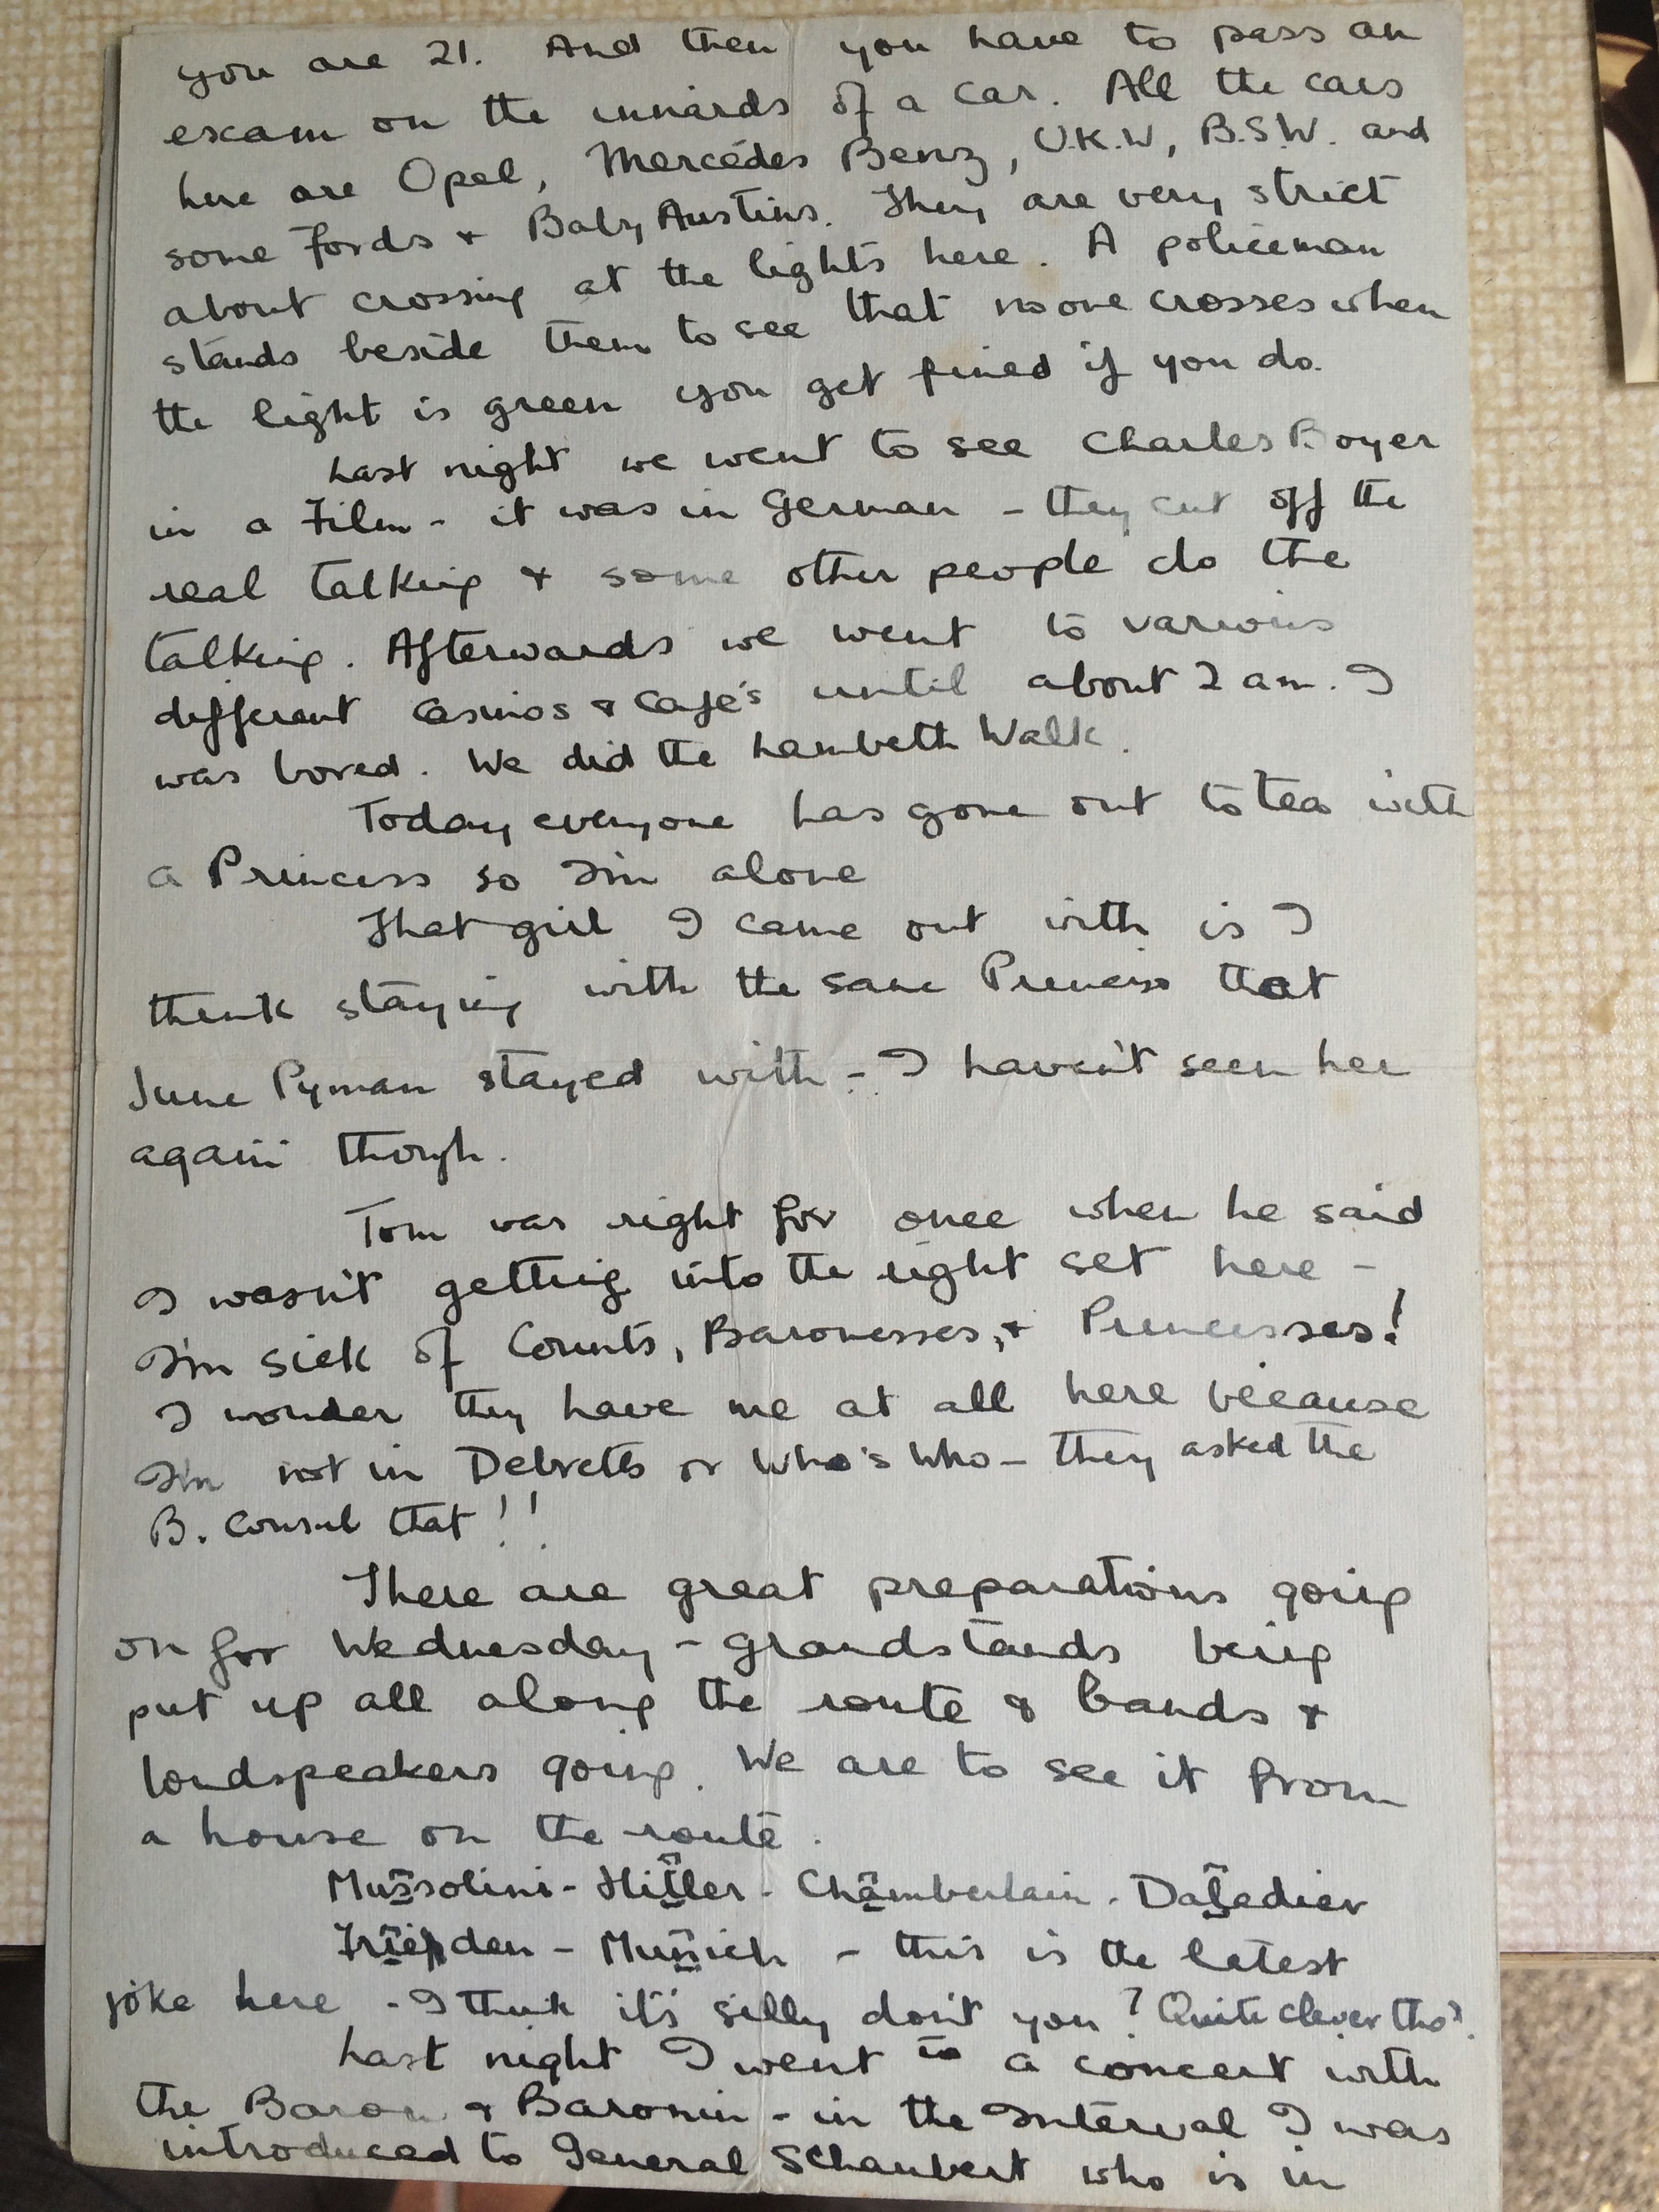 you are 21. And then you have to pass an
exam on the innards of a car. All the cars
here are Opel, Mercédes Benz, U.K.W, B.S.W. and
some Fords & Baby Austins. They are very strict
about crossing at the lights here. A policeman
stands beside them to see that no one crosses when
the light is green you get fined if you do.
Last night we went to see Charles Boyer
in a Film - it was in German - they cut off the
real talking & some other people do the
talking. Afterwards we went to various
different Casinos & Cafe's until about 2 am. I
was bored. We did the Lambeth Walk.
Today everyone has gone out to tea with
a Princess so I'm alone
That girl I came out with is I
think staying with the same Princess that
June Pyman stayed with - I haven't seen her
again though.
Tom was right for once when he said
I wasn't getting into the right set here -
I'm sick of Counts, Baronesses, & Princesses!
I wonder they have me at all here because
I'm not in Debretts or Who's Who - they asked the
B. Consul that!!
There are great preparations going
on for Wednesday - grandstands being
put up all along the route & bands &
loudspeakers going. We are to see it from
a house on the route.
Mussolini - Hitler - Chamberlain - Daladier
Frieden - Munich - this is the latest
joke here - I think it's silly don't you? Quite clever tho'.
Last night I went to a concert with
the Baron & Baronin - in the Interval I was
introduced to General Schaubert who is in